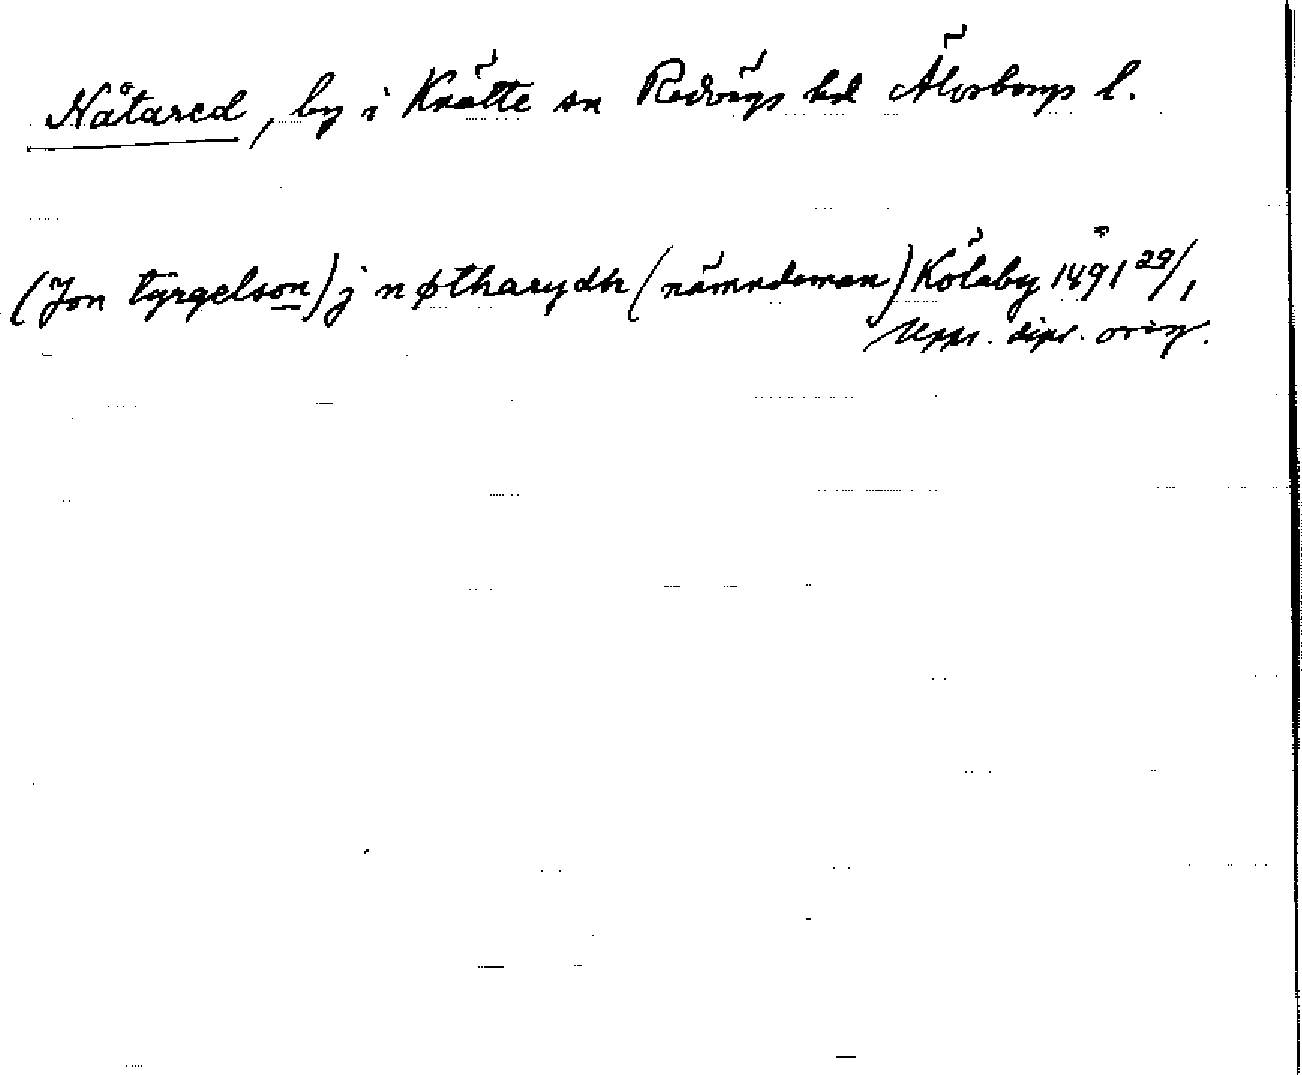 Nåtared, by i Knätte sn Redvägs hd Älvsborgs l.
(Jon tyrgelson) j nøtharydh (nämndeman) Kölaby 1491 29/1
Upps. dipl. orig.